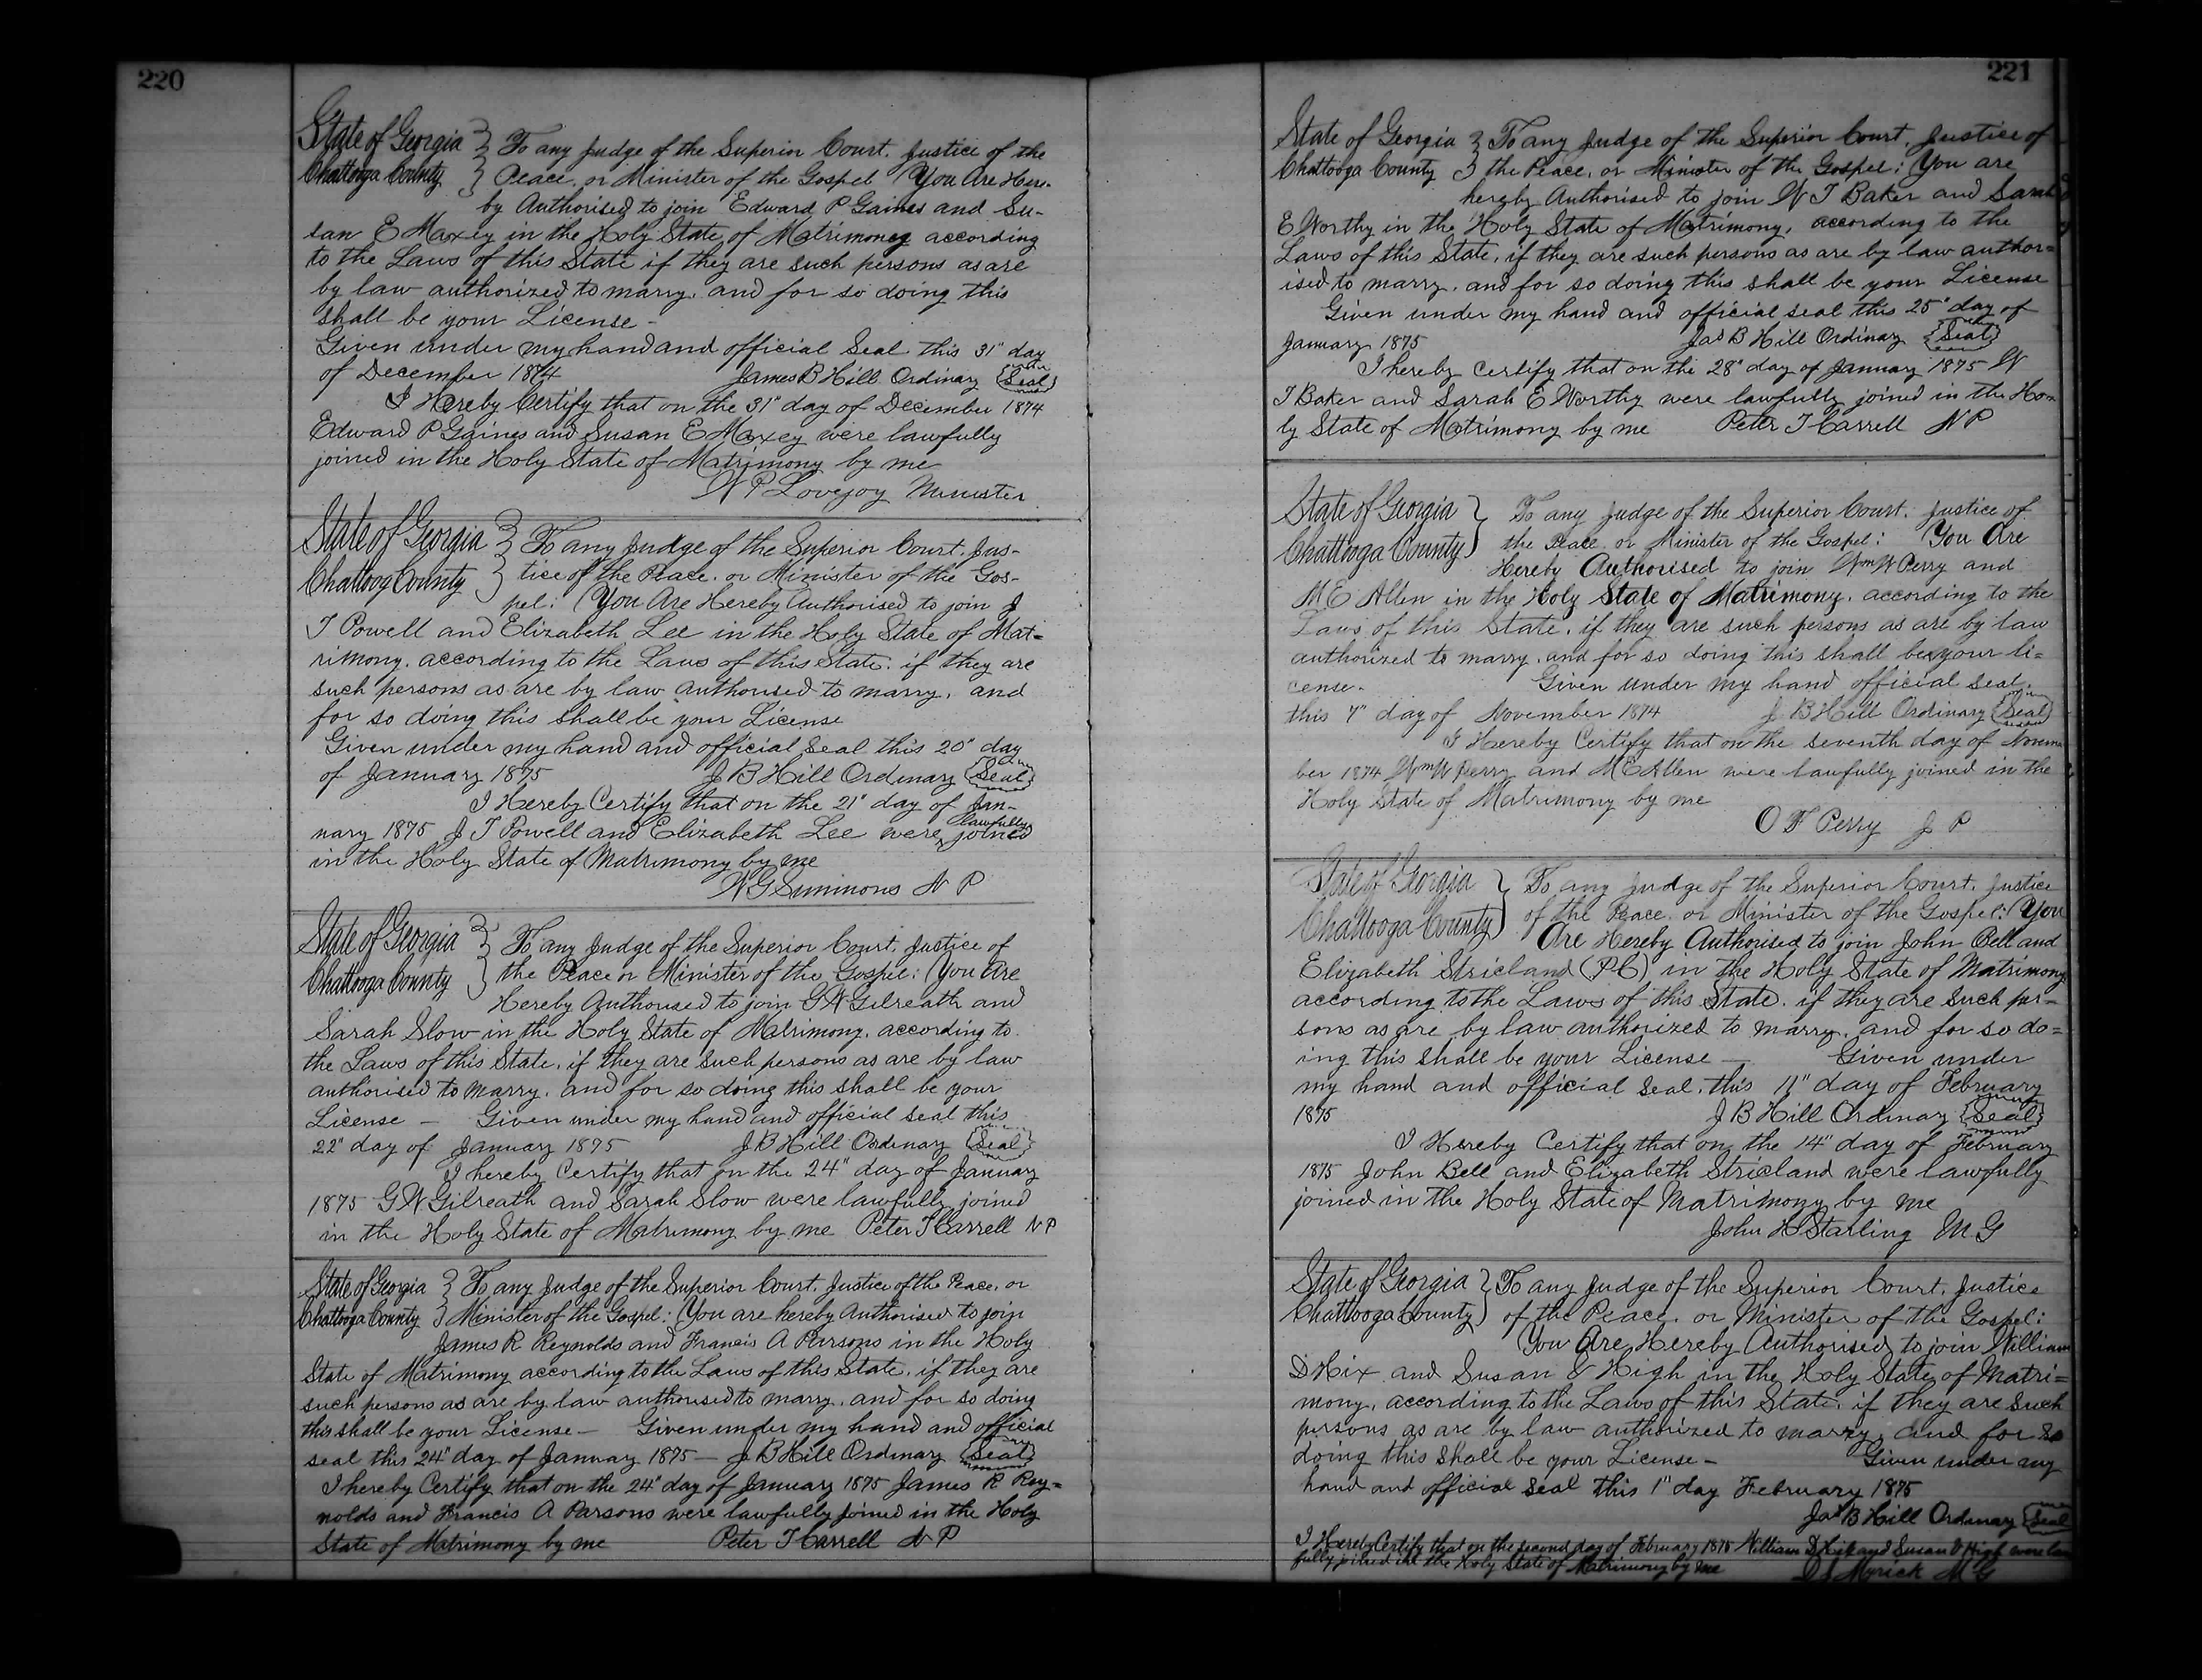 220
State of Georgia } To any Judge of the Superior Court. Justice of the
Chattooga County } Peace. or Minister of the Gospel (You Are Here-
by Authorised to join Edward P Gaines and Su-
san E Maxey in the Holy State of Matrimoney according
to the Laws of this State if they are such persons as are
by law authorized to marry. and for so doing this
shall be your License -
Given under my hand and official Seal this 31" day
of December 1874 James B Hill Ordinary {Seal}
I Hereby Certify that on the 31" day of December 1874
Edward P Gaines and Susan E Maxey were lawfully
joined in the Holy State of Matrimony by me
W P Lovejoy Minister
State of Georgia } To any Judge of the Superior Court. Jus-
Chattoog County } tice of the Peace. or Minister of the Gos-
pel: (You Are Hereby Authorised to join J
T Powell and Elizabeth Lee in the Holy State of Mat-
rimony. according to the Laws of this State: if they are
such persons as are by law authorised to marry. and
for so doing this shall be your License
Given under my hand and official Seal this 20" day
of January 1875 J B Hill Ordinary {Seal}
I Hereby Certify that on the 21" day of Jan-
lawfully
nary 1875 J T Powell and Elizabeth Lee were joined
in the Holy State of Matrimony by me
W G Simmons N P
State of Georgia } To any Judge of the Superior Court, Justice of
Chattooga County } the Peace or Minister of the Gospel: (You Are
Hereby Authorised to join G W Gilreath and
Sarah Slow in the Holy State of Matrimony. according to
the Laws of this State. if they are such persons as are by law
authorised to marry. and for so doing this shall be your
License - Given under my hand and official seal this
22" day of January 1875 J B Hill Ordinary {Seal}
I hereby Certify that on the 24" day of January
1875 G W Gilreath and Sarah Slow were lawfully joined
in the Holy State of Matrimony by me Peter T Carrell N P
State of Georgia } To any Judge of the Superior Court. Justice of the Peace. or
Chattooga County } Minister of the Gospel: (You are hereby Authorised to join
James R Reynolds and Francis A Parsons in the Holy
State of Matrimony according to the Laws of this State. if they are
such persons as are by law authorised to marry. and for so doing
this shall be your License - Given under my hand and official
seal this 24" day of January 1875 - J B Hill Ordinary {Seal}
I hereby Certify that on the 24" day of January 1875 James R Rey=
nolds and Francis A Parsons were lawfully joined in the Holy
State of Matrimony by me Peter T Carrell N P
221
State of Georgia } To any Judge of the Superior Court. Justice of
Chattooga County } the Peace. or Minister of the Gospel: (You are
hereby Authorised to join W T Baker and Sarah
E Worthy in the Holy State of Matrimony. according to the
Laws of this State. if they are such persons as are by law author=
ised to marry. and for so doing this shall be your License
Given under my hand and official seal this 25" day of
January 1875 Jas B Hill Ordinary {Seal}
I hereby Certify that on the 28" day of January 1875 W
T Baker and Sarah E Worthy were lawfully joined in the Ho=
ly State of Matrimony by me Peter T Carrell N P
State of Georgia } To any Judge of the Superior Court. Justice of
Chattooga County } the Peace. or Minister of the Gospel: You Are
Hereby Authorised to join Wm W Perry and
M E Allen in the Holy State of Matrimony. according to the
Laws of this State. if they are such persons as are by law
authorized to marry. and for so doing this shall be your li=
cense. Given under my hand official seal.
this 7" day of November 1874 J B Hill Ordinary {Seal}
I Hereby Certify that on the seventh day of Novem
ber 1874 Wm W Perry and M E Allen were lawfully joined in the
Holy State of Matrimony by me
O F Perry J P
State of Georgia } To any Judge of the Superior Court. Justice
Chattooga County } of the Peace. or Minister of the Gospel: (You
Are Hereby Authorised to join John Bell and
Elizabeth Stricland (P C) in the Holy State of Matrimony
according to the Laws of this State. if they are such per-
sons as are by law authorized to marry. and for so do=
ing this shall be your License - Given under
my hand and official seal. this 11" day of February
1875 J B Hill Ordinary {Seal}
I Hereby Certify that on the 14" day of February
1875 John Bell and Elizabeth Stricland were lawfully
joined in the Holy State of Matrimony by me
John H Starling M G
State of Georgia } To any Judge of the Superior Court. Justice
Chattooga County } of the Peace. or Minister of the Gospel:
(You Are Hereby Authorised to join William
D Hix and Susan & High in the Holy State of Matri=
mony. according to the Laws of this State. if they are such
persons as are by law authorized to marry. and for so
doing this shall be your License - Given under my
hand and official seal this 1" day February 1875
Jas B Hill Ordinary {Seal
I Hereby Certify that on the second day of February 1875 William D Hix and Susan & High were law
fully joined in the Holy State of Matrimony by me Myrick M G